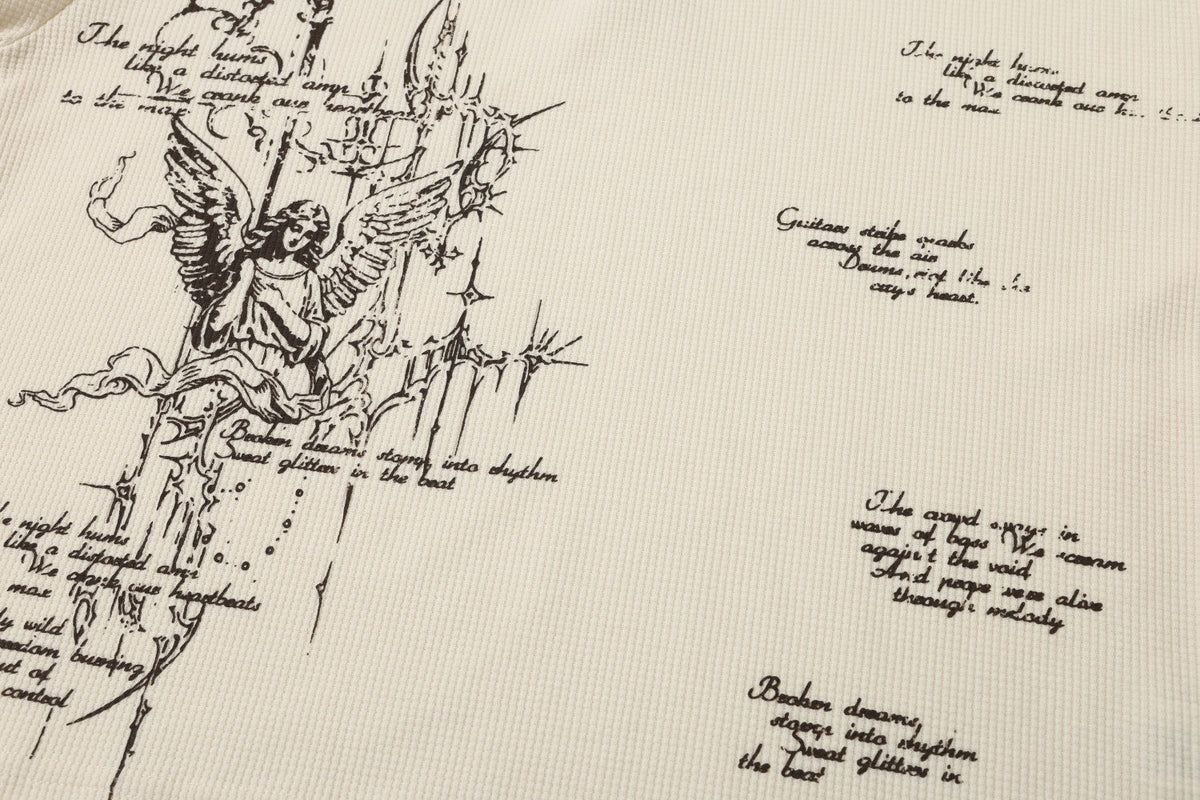 The night hums
like a distorted amp
We crank our heartbeats
to the max
The night hums
like a distorted amp
We crank our
to the max
Guitars strike sparks
across the air
Drums riot like the
city's heart.
Broken dreams stomp into rhythm
Sweat glitters in the beat
The crowd sways in
waves of bass We scream
against the void
And prove were alive
through melody
night hums
like a distorted amp
We crank our heartbeats
max
wild
burning
out of
control
Broken dreams,
stomp into rhythm
Sweat glitters in
the beat